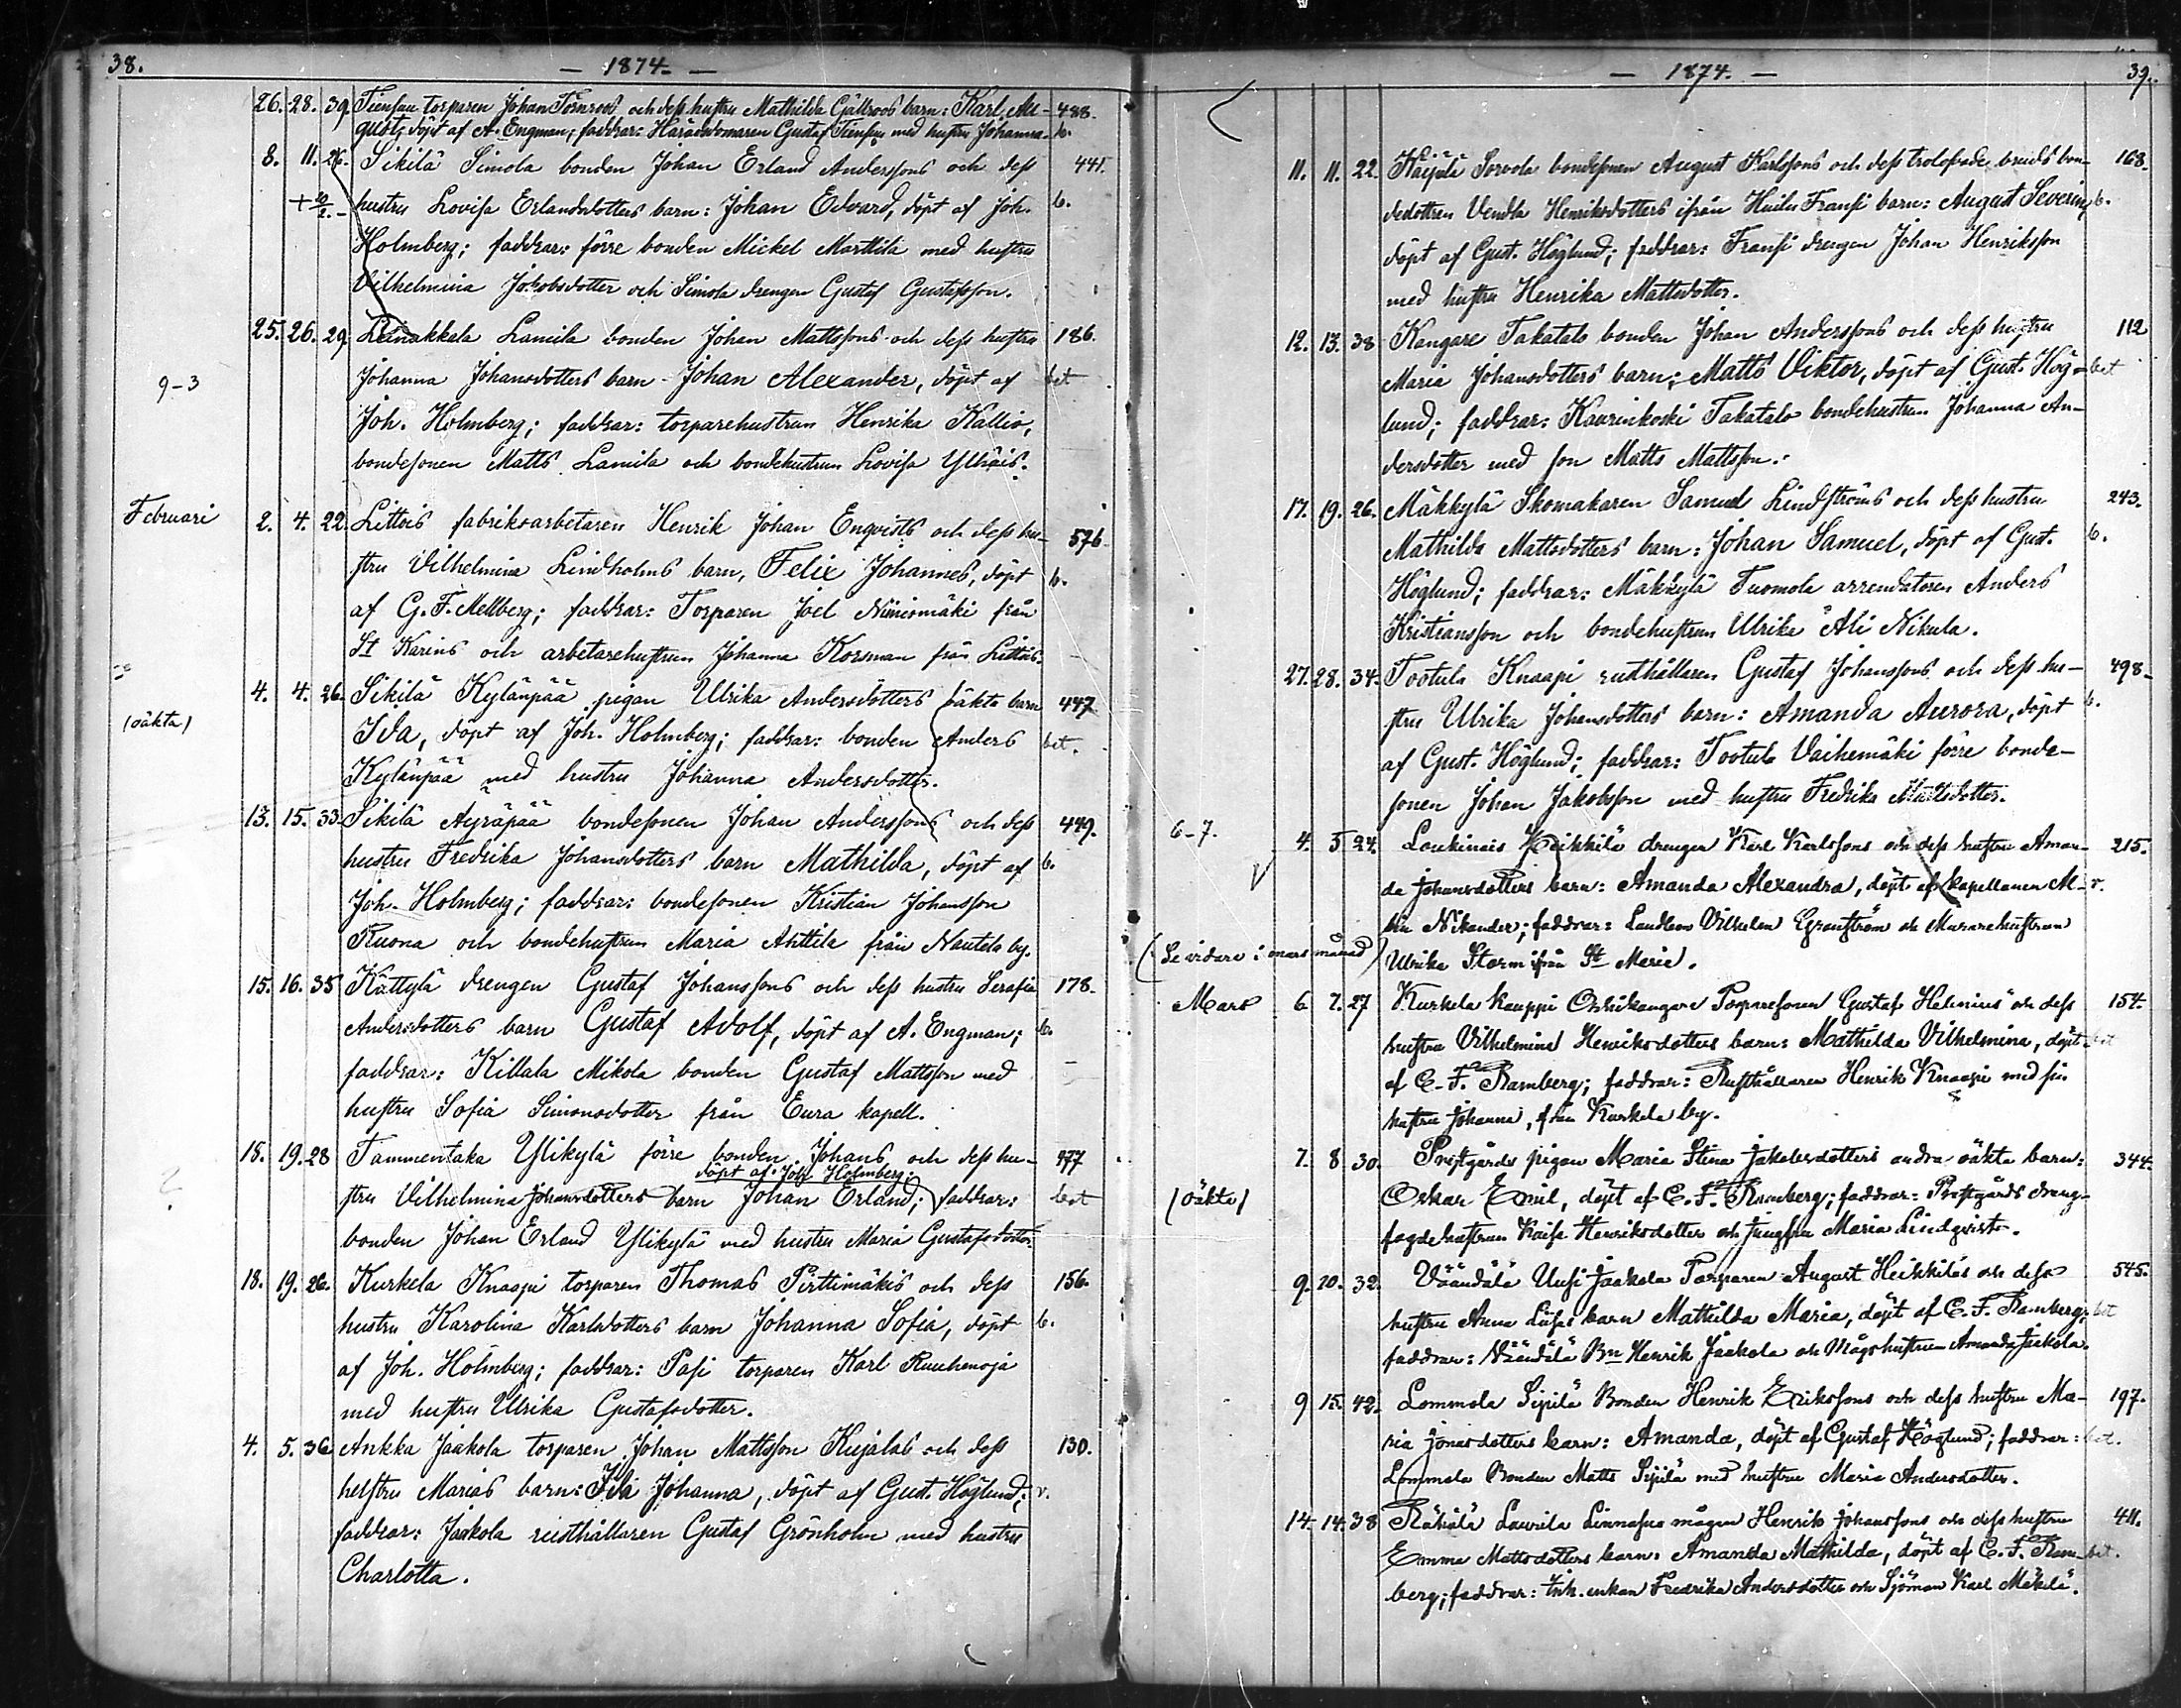 38.
— 1874. —
26. 28. 39. Tiensuu torparen Johan Törnroos och dess hustru Mathilda Gjällroos barn: Karl Au- 488.
gust, döpt af A. Engman; faddrar: Häradsdomaren Gustaf Tiensuu med hustru Johanna. b.
8. 11. 26. Sikilä Simola bonden Johan Erland Anderssons och dess 441.
+ 20/2. – hustru Lovisa Erlandsdotters barn: Johan Edvard, döpt af Joh. b.
Holmberg; faddrar: förre bonden Mickel Marttila med hustru
Vilhelmina Jakobsdotter och Simola drengen Gustaf Gustafsson.
25. 26. 29. Leinakkala Lamila bonden Johan Mattssons och dess hustru 186.
9–3 Johanna Johansdotters barn Johan Alexander, döpt af bet
Joh. Holmberg; faddrar: torparehustrun Henrika Kallio,
bondesonen Matts Lamila och bondehustrun Lovisa Yllräis.
Februari 2. 4. 22. Littois fabriksarbetaren Henrik Johan Enqvists och dess hu- 576
stru Vilhelmina Lindholms barn, Felix Johannes, döpt b.
af G. F. Mellberg; faddrar: Torparen Joel Niiniomäki från
St Karins och arbetarehustrun Johanna Korsman från Littois.
4. 4. 26. Sikilä Kylänpää pigan Ulrika Andersdotters oäkta barn 447
(oäkta) Ida, döpt af Joh. Holmberg; faddrar: bonden Anders bet.
Kylänpää med hustru Johanna Andersdotter.
13. 15. 33. Sikilä Äyräpää bondesonen Johan Anderssons och dess 449.
hustru Fredrika Johansdotters barn Mathilda, döpt af b.
Joh. Holmberg; faddrar: bondesonen Kristian Johansson
Ruona och bondehustrun Maria Anttila från Nautela by.
15. 16. 35 Kättylä drengen Gustaf Johanssons och dess hustru Serafia 178.
Andersdotters barn Gustaf Adolf, döpt af A. Engman; b.
faddrar: Killala Mikola bonden Gustaf Mattsson med
hustru Sofia Simonsdotter från Eura kapell.
18. 19. 28 Tammentaka Ylikylä förre bonden Johans och dess hu- 477
döpt af Joh. Holmberg;
stru Vilhelmina Johansdotters barn Johan Erland; faddrar: bet
bonden Johan Erland Ylikylä med hustru Maria Gustafsdotter.
18. 19. 26. Kurkela Knaapi torparen Thomas Pirttimäkis och dess 156.
hustru Karolina Karlsdotters barn Johanna Sofia, döpt b.
af Joh. Holmberg; faddrar: Pasi torparen Karl Ruuhenoja
med hustru Ulrika Gustafsdotter.
4. 5. 36 Ankka Jaakola torparen Johan Mattsson Kujalas och dess 130.
hustru Marias barn: Ida Johanna, döpt af Gust. Höglund; v.
faddrar: Jaakola rusthållaren Gustaf Grönholm med hustru
Charlotta.
— 1874. —
39.
11. 11. 22. Kaijala Sorvola bondesonen August Karlssons och dess trolofvade bruds bon- 168.
dedottren Vendla Henriksdotters ifrån Huilu Fransi barn: August Severin, b.
döpt af Gust. Höglund; faddrar: Fransi drengen Johan Henriksson
med hustru Henrika Mattsdotter.
12. 13. 38 Kangare Takatalo bonden Johan Anderssons och dess hustru 112
Maria Johansdotters barn: Matts Viktor, döpt af Gust. Hög- bet
lund; faddrar: Kaurinkoski Takatalo bondehustrun Johanna An-
dersdotter med son Matts Mattsson.
17. 19. 26. Mäkkylä Skomakaren Samuel Lindströms och dess hustru 243.
Mathilda Mattsdotters barn: Johan Samuel, döpt af Gust. b.
Höglund; faddrar: Mäkkylä Tuomola arrendatoren Anders
Kristiansson och bondehustrun Ulrika Ali Nikula.
27. 28. 34. Tootula Knaapi rusthållaren Gustaf Johanssons och dess hu- 498.
stru Ulrika Johansdotters barn: Amanda Aurora, döpt b.
af Gust. Höglund; faddrar: Tootula Vaihemäki förre bonde-
sonen Johan Jakobsson med hustru Fredrika Mattsdotter.
6–7. 4. 5 24. Loukinais Heikkilä drengen Karl Karlssons och dess hustru Aman- 215.
da Johansdotters barn: Amanda Alexandra, döpt af kapellanen Al- v.
bin Nikander; faddrar: Landbon Vilhelm Granström och Murarehustrun
(Se vidare i mars månad) Ulrika Storm ifrån St Marie.
Mars 6 7. 27 Kurkela Kauppi Torparesonen Gustaf Helenius och dess 154.
hustru Vilhelmina Henriksdotters barn: Mathilda Vilhelmina, döpt bet
af C. F. Ramberg; faddrar: Rusthållaren Henrik Knaapi med sin
hustru Johanna, från Kurkela by.
7. 8 30. Prestgårds pigan Maria Stina Jakobsdotters andra oäkta barn: 344.
(oäkta) Oskar Emil, döpt af C. F. Ramberg; faddrar: Prestgårds dreng-
fogdehustrun Kaisa Henriksdotter och jungfru Maria Lindqvist.
9. 10. 32. Väändälä Uusi Jaakola Torparen August Heikkiläs och dess 545.
hustru Anna Liisas barn Mathilda Maria, döpt af C. F. Ramberg; bet
faddrar: Väändälä Bn Henrik Jaakola och Mågshustrun Amanda Jaakola.
9 15. 42. Lommola Sipilä Bonden Henrik Erikssons och dess hustru Ma- 197.
ria Jonasdotters barn: Amanda, döpt af Gustaf Höglund; faddrar: bet.
Lommola Bonden Matts Sipilä med hustru Maria Andersdotter.
14. 14. 38 Rähälä Laurila Linnasuu mågen Henrik Johanssons och dess hustru 411.
Emma Mattsdotters barn: Amanda Mathilda, döpt af C. F. Ram- bet.
berg; faddrar: Inh. enkan Fredrika Andersdotter och Sjöman Karl Mäkelä.